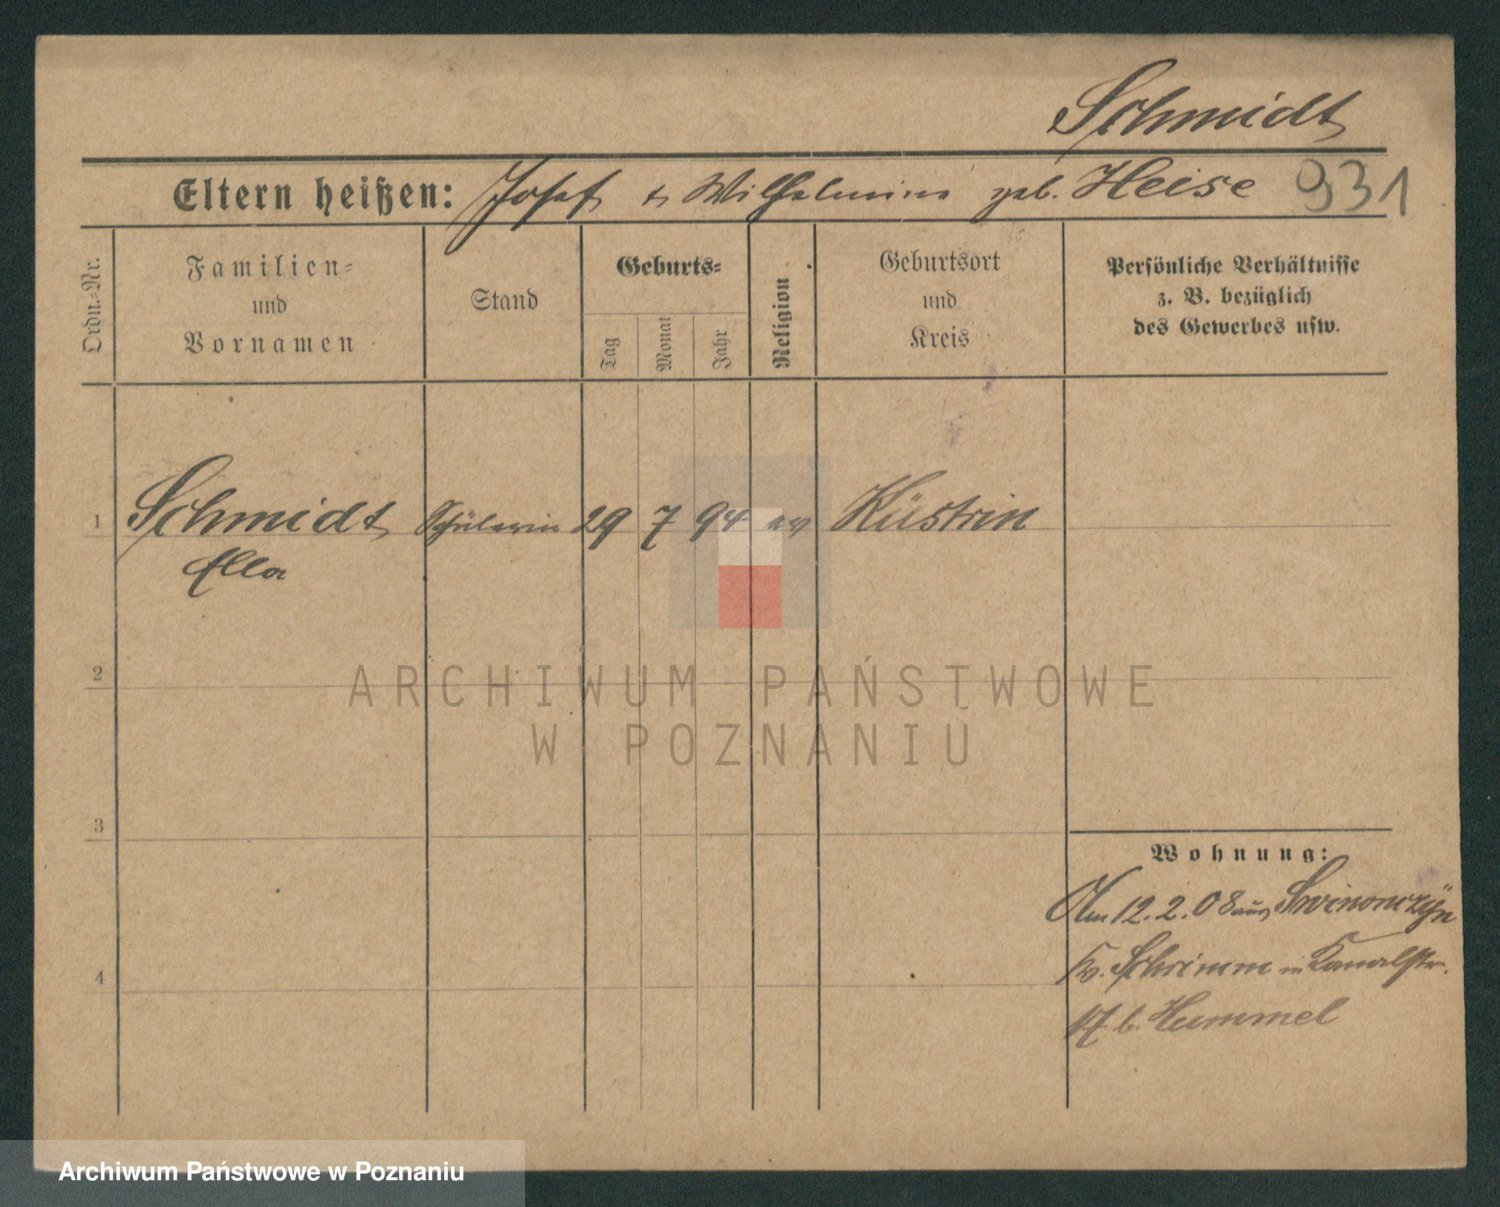 Schmidt
Eltern heißen: Josef u Wilhelmine geb. Heise 931
Ordn.-Nr.
Familien-
und
Vornamen
Stand
Geburts-
Tag
Monat
Jahr
Religion
Geburtsort
und
Kreis
Persönliche Verhältnisse
z. B. bezüglich
des Gewerbes usw.
1 Schmidt Schülerin 29 7 94 ev Küstrin
Ella
2
ARCHIWUM PAŃSTWOWE
W POZNANIU
3
Wohnung:
Am 12.2.08 aus
Kr. Schrimm in Kanalstr.
17 b. Hummel
4
Archiwum Państwowe w Poznaniu